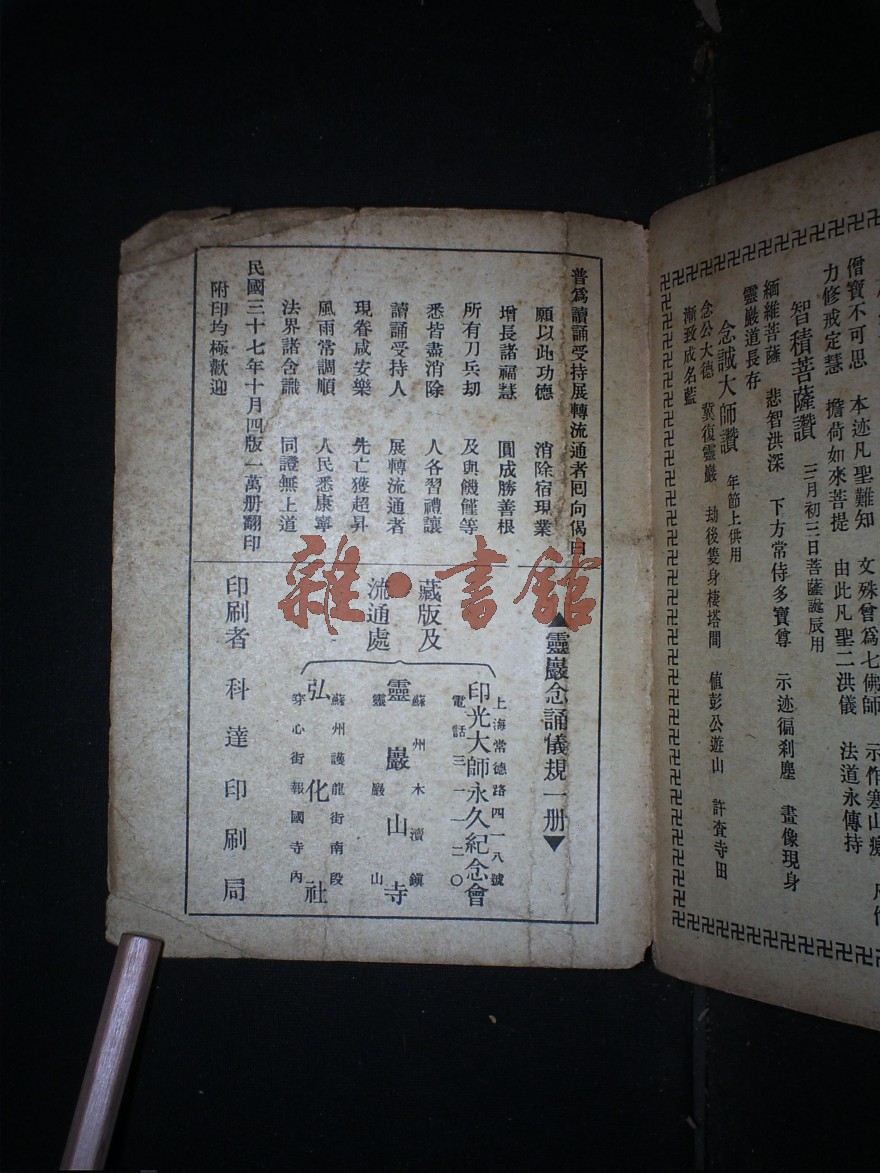 僧寶不可思 本迹凡聖難知 文殊曾爲七佛師 示作寒山
力修戒定慧 擔荷如來菩提 由此凡聖二洪儀 法道永傳持
智積菩薩讚 三月初三日菩薩誕辰用
緬維菩薩 悲智洪深 下方常侍多寶尊 示迹徧刹塵 畫像現身
靈巖道長存
念誠大師讚 年節上供用
念公大德 冀復靈巖 劫後隻身棲塔間 値彭公遊山 許査寺田
漸致成名藍
普爲讀誦受持展轉流通者囘向偈曰
願以此功德 消除宿現業
增長諸福慧 圓成勝善根
所有刀兵劫 及與饑饉等
悉皆盡消除 人各習禮讓
讀誦受持人 展轉流通者
現眷咸安樂 先亡獲超昇
風雨常調順 人民悉康寧
法界諸含識 同證無上道
民國三十七年十月四版一萬册翻印
附印均極歡迎
▲靈巖念誦儀規一册▼
藏版及
流通處
上海常德路四一八號
印光大師永久紀念會
電話三一一二〇
蘇州木瀆鎭
靈巖山寺
靈巖山
蘇州護龍街南段
弘化社
穿心街報國寺內
印刷者 科達印刷局
雜·書館